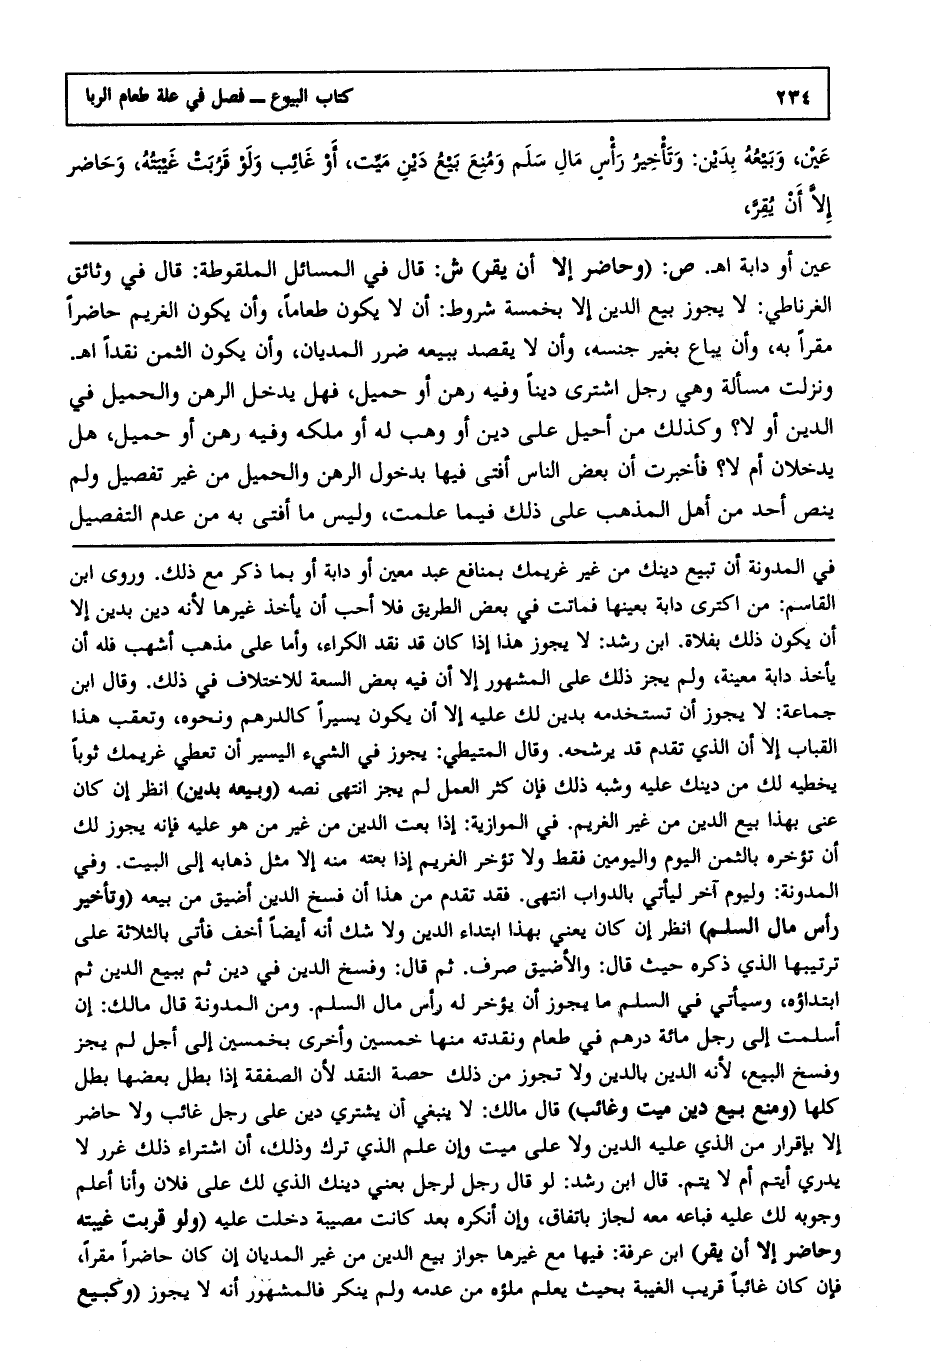 ٢٣٤ كتاب البيوع ــ فصل في علة طعام الربا
عَيْن، وَبَيْعُهُ بِدَيْن: وَتَأْخِيرُ رَأْسِ مَالِ سَلَم وَمُنِعَ بَيْعُ دَيْنِ مَيِّت، أَوْ غَائِب وَلَوْ قَرُبَتْ غَيْبَتُهُ، وَحَاضر
إِلاَّ أَنْ يُقِرَّ،
عين أو دابة اهـ. ص: (وحاضر إلا أن يقر) ش: قال في المسائل الملقوطة: قال في وثائق
الغرناطي: لا يجوز بيع الدين إلا بخمسة شروط: أن لا يكون طعاماً، وأن يكون الغريم حاضراً
مقراً به، وأن يباع بغير جنسه، وأن لا يقصد ببيعه ضرر المديان، وأن يكون الثمن نقداً اهـ.
ونزلت مسألة وهي رجل اشترى ديناً وفيه رهن أو حميل، فهل يدخل الرهن والحميل في
الدين أو لا؟ وكذلك من أحيل على دين أو وهب له أو ملكه وفيه رهن أو حميل، هل
يدخلان أم لا؟ فأخبرت أن بعض الناس أفتى فيها بدخول الرهن والحميل من غير تفصيل ولم
ينص أحد من أهل المذهب على ذلك فيما علمت، وليس ما أفتى به من عدم التفصيل
في المدونة أن تبيع دينك من غير غريمك بمنافع عبد معين أو دابة أو بما ذكر مع ذلك. وروى ابن
القاسم: من اكترى دابة بعينها فماتت في بعض الطريق فلا أحب أن يأخذ غيرها لأنه دين بدين إلا
أن يكون ذلك بفلاة. ابن رشد: لا يجوز هذا إذا كان قد نقد الكراء، وأما على مذهب أشهب فله أن
يأخذ دابة معينة، ولم يجز ذلك على المشهور إلا أن فيه بعض السعة للاختلاف في ذلك. وقال ابن
جماعة: لا يجوز أن تستخدمه بدين لك عليه إلا أن يكون يسيراً كالدرهم ونحوه، وتعقب هذا
القباب إلا أن الذي تقدم قد يرشحه. وقال المتيطي: يجوز في الشيء اليسير أن تعطي غريمك ثوباً
يخطيه لك من دينك عليه وشبه ذلك فإن كثر العمل لم يجز انتهى نصه (وبيعه بدين) انظر إن كان
عنى بهذا بيع الدين من غير الغريم. في الموازية: إذا بعت الدين من غير من هو عليه فإنه يجوز لك
أن تؤخره بالثمن اليوم واليومين فقط ولا تؤخر الغريم إذا بعته منه إلا مثل ذهابه إلى البيت. وفي
المدونة: وليوم آخر ليأتي بالدواب انتهى. فقد تقدم من هذا أن فسخ الدين أضيق من بيعه (وتأخير
رأس مال السلم) انظر إن كان يعني بهذا ابتداء الدين ولا شك أنه أيضاً أخف فأتى بالثلاثة على
ترتيبها الذي ذكره حيث قال: والأضيق صرف. ثم قال: وفسخ الدين في دين ثم ببيع الدين ثم
ابتداؤه، وسيأتي في السلم ما يجوز أن يؤخر له رأس مال السلم. ومن المدونة قال مالك: إن
أسلمت إلى رجل مائة درهم في طعام ونقدته منها خمسين وأخرى بخمسين إلى أجل لم يجز
وفسخ البيع، لأنه الدين بالدين ولا تجوز من ذلك حصة النقد لأن الصفقة إذا بطل بعضها بطل
كلها (ومنع بيع دين ميت وغائب) قال مالك: لا ينبغي أن يشتري دين على رجل غائب ولا حاضر
إلا بإقرار من الذي عليه الدين ولا على ميت وإن علم الذي ترك وذلك، أن اشتراء ذلك غرر لا
يدري أيتم أم لا يتم. قال ابن رشد: لو قال رجل لرجل بعني دينك الذي لك على فلان وأنا أعلم
وجوبه لك عليه فباعه معه لجاز باتفاق، وإن أنكره بعد كانت مصيبة دخلت عليه (ولو قربت غيبته
وحاضر إلا أن يقر) ابن عرفة: فيها مع غيرها جواز بيع الدين من غير المديان إن كان حاضراً مقراً،
فإن كان غائباً قريب الغيبة بحيث يعلم ملؤه من عدمه ولم ينكر فالمشهور أنه لا يجوز (وكبيع